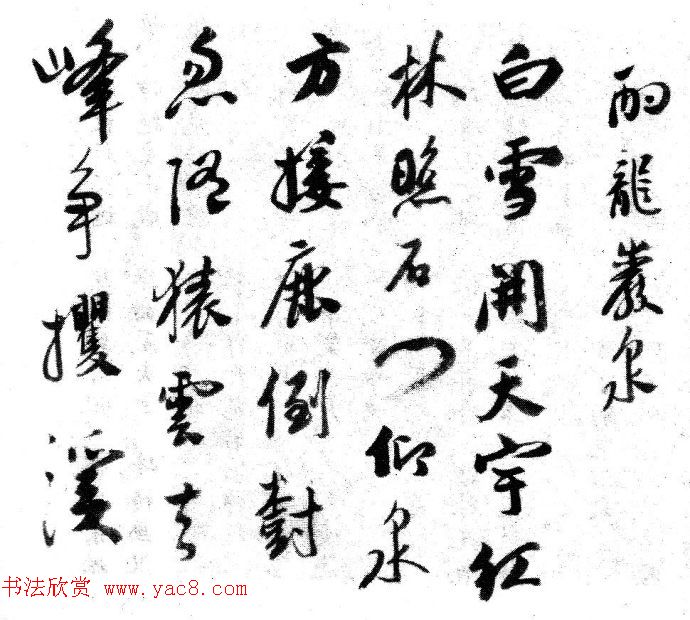 酌龍巖泉
白雪開天宇紅
林照石門仰泉
方接鹿倒樹
忽隨猿雲去
峰争攫溪
书法欣赏 www.yac8.com